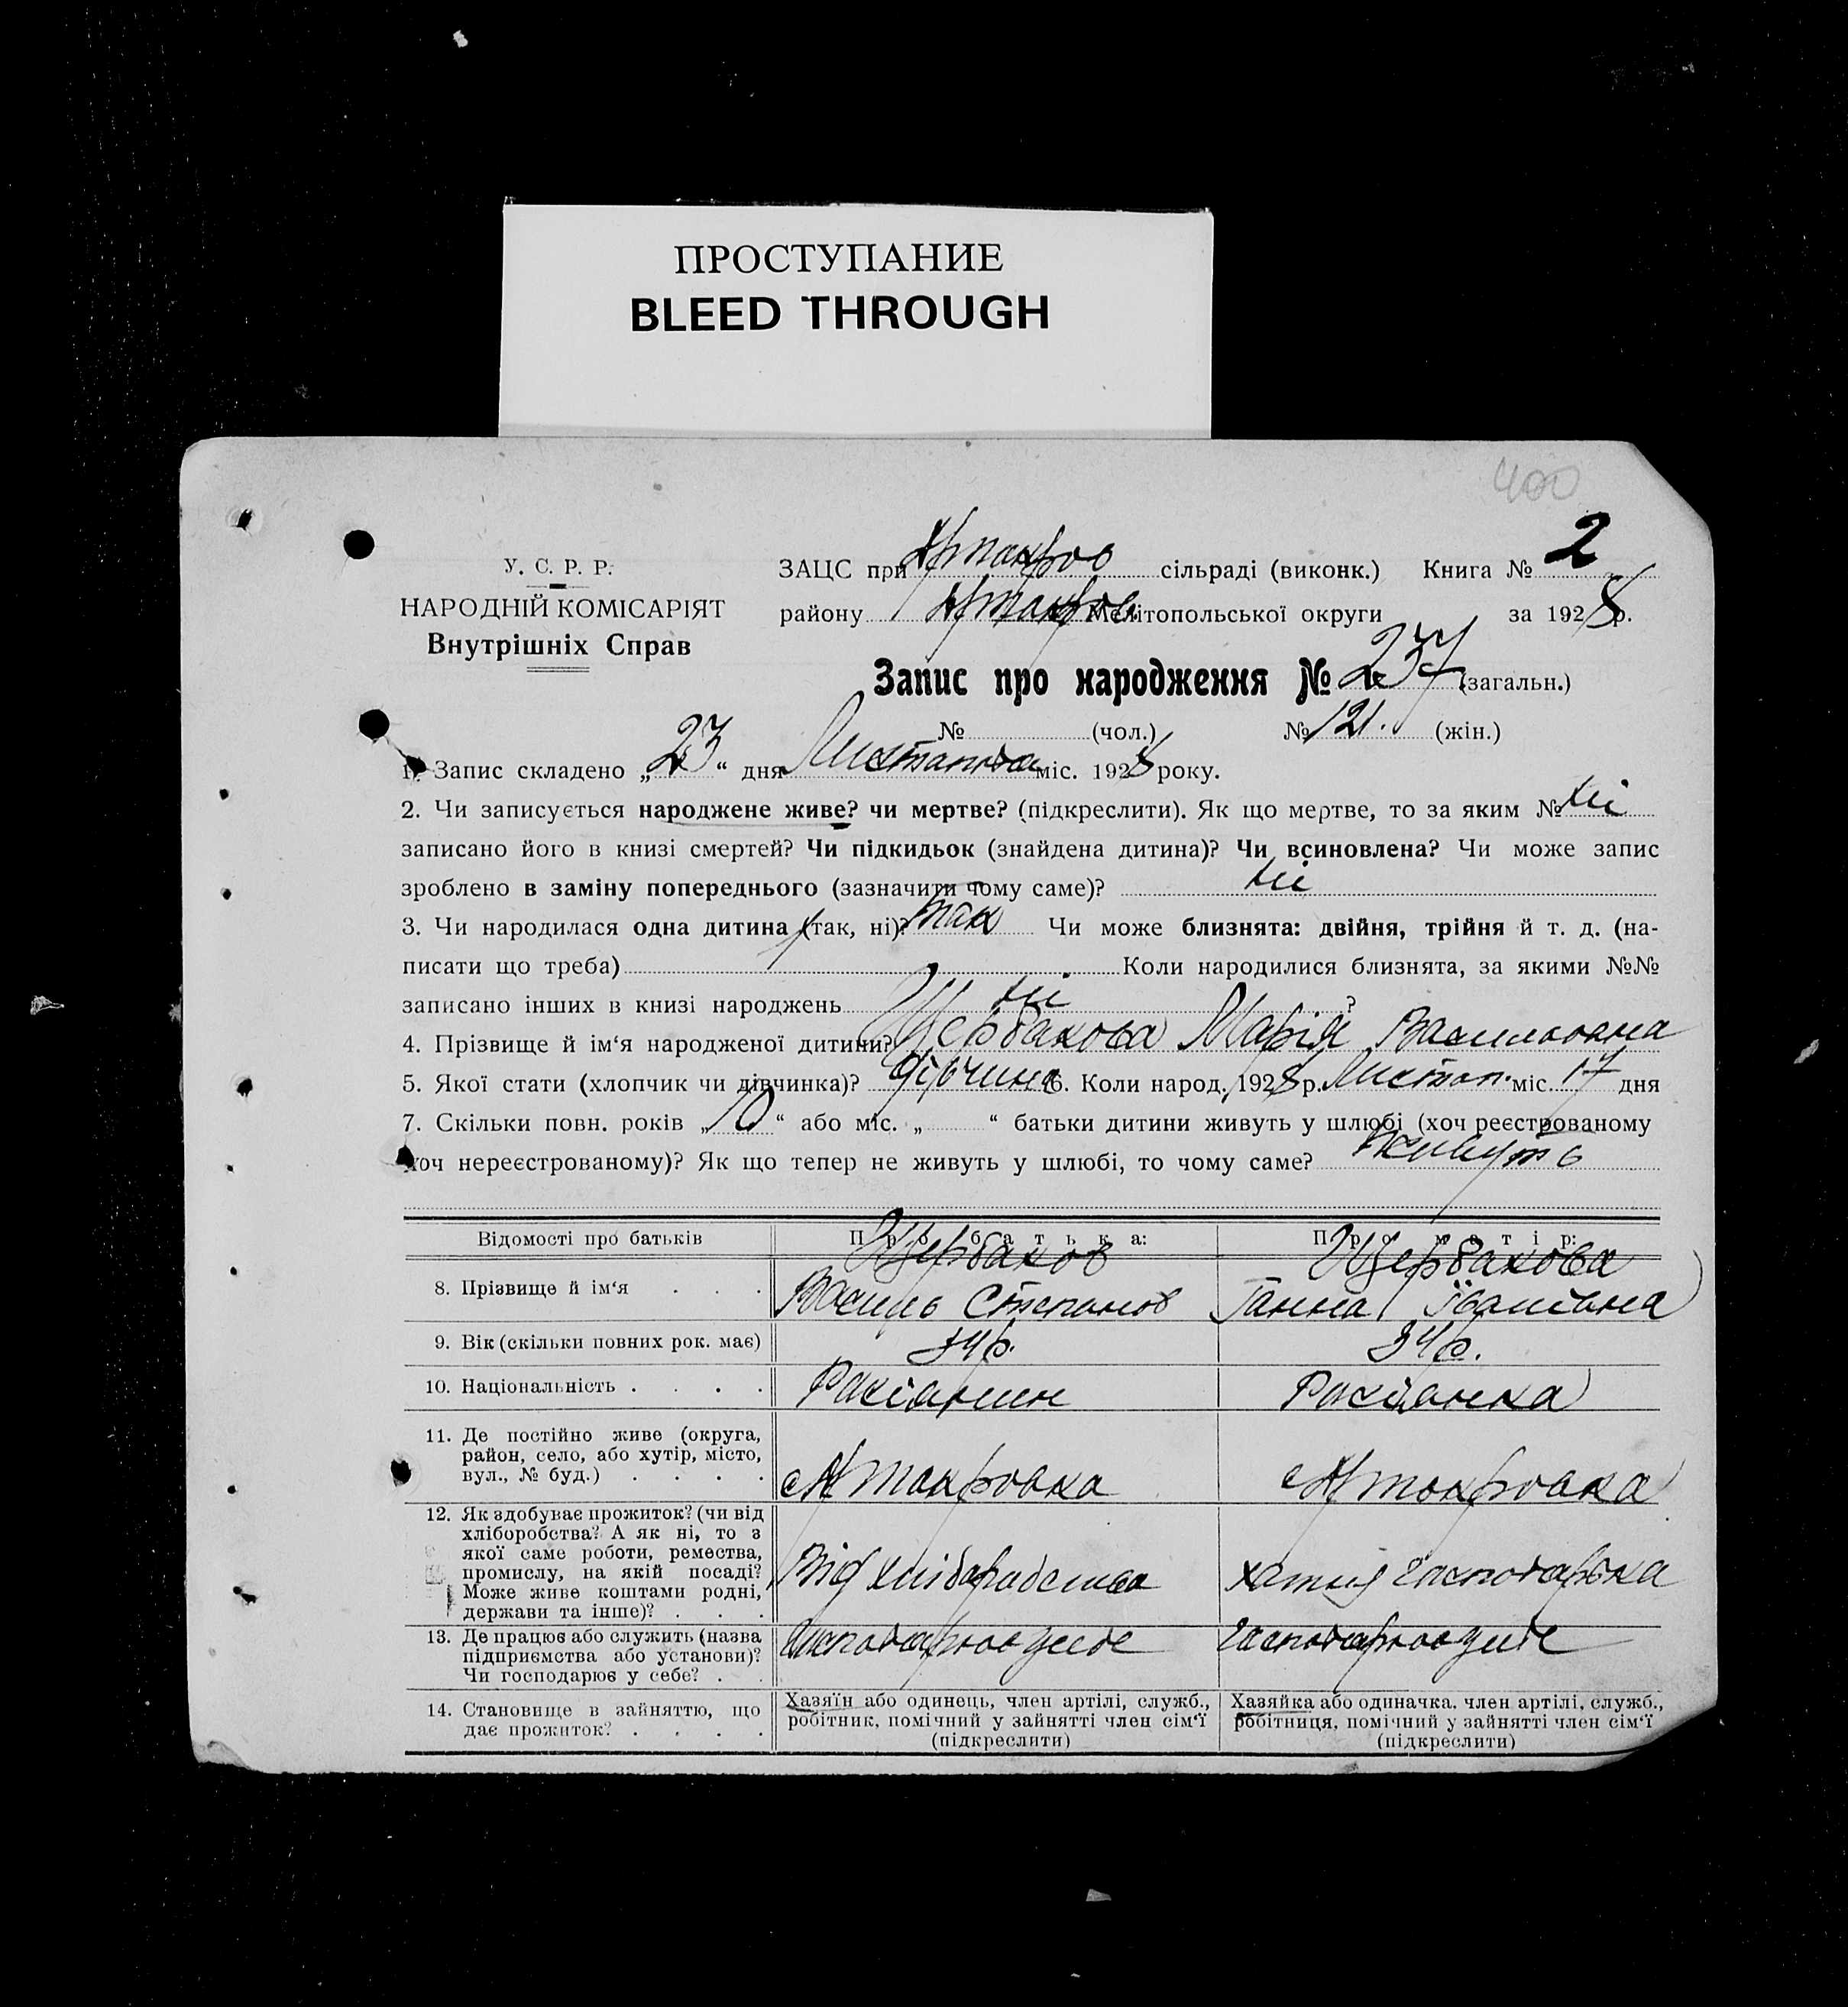 ПРОСТУПАНИЕ
BLEED THROUGH
400
У. С. Р. Р.
НАРОДНІЙ КОМІСАРІЯТ
Внутрішніх Справ
ЗАЦС при сільраді (виконк.) Книга № 2
району Мелітопольської округи за 1928 р.
Запис про народження № 237 (загальн.)
№ (чол.) № 121. (жін.)
1. Запис складено „23“ дня Листопада міс. 1928 року.
2. Чи записується народжене живе? чи мертве? (підкреслити). Як що мертве, то за яким № ні
записано його в книзі смертей? Чи підкидьок (знайдена дитина)? Чи всиновлена? Чи може запис
зроблено в заміну попереднього (зазначити чому саме)? ні
3. Чи народилася одна дитина (так, ні)? так Чи може близнята: двійня, трійня й т. д. (на-
писати що треба) Коли народилися близнята, за якими №№
записано інших в книзі народжень ні ?
4. Прізвище й ім‘я народженої дитини? Щербакова Марія Васильовна
5. Якої стати (хлопчик чи дівчинка)? дівчина 6. Коли народ. 1928 р. Листоп. міс. 17 дня
7. Скільки повн. років „10“ або міс. „ “ батьки дитини живуть у шлюбі (хоч реєстрованому
хоч нереєстрованому)? Як що тепер не живуть у шлюбі, то чому саме? живуть
Відомості про батьків Про батька: Про матір:
8. Прізвище й ім‘я . . . Щербаков Василь Степанов Щербакова Ганна Іванівна
9. Вік (скільки повних рок. має) 34 р. 34 р.
10. Національність . . . . Росіянин Росіянка
11. Де постійно живе (округа,
район, село, або хутір, місто,
вул., № буд.) . . . .
12. Як здобуває прожиток? (чи від
хліборобства? А як ні, то з
якої саме роботи, ремества,
промислу, на якій посаді?
Може живе коштами родні,
держави та інше)? . . .
Від хліборобства хатня господарка
13. Де працює або служить (назва
підприємства або установи)?
Чи господарює у себе? . .
14. Становище в зайняттю, що
дає прожиток? . . . .
Хазяїн або одинець, член артілі, служб.,
робітник, помічний у зайнятті член сім‘ї
(підкреслити)
Хазяйка або одиначка, член артілі, служб.,
робітниця, помічний у зайнятті член сім‘ї
(підкреслити)